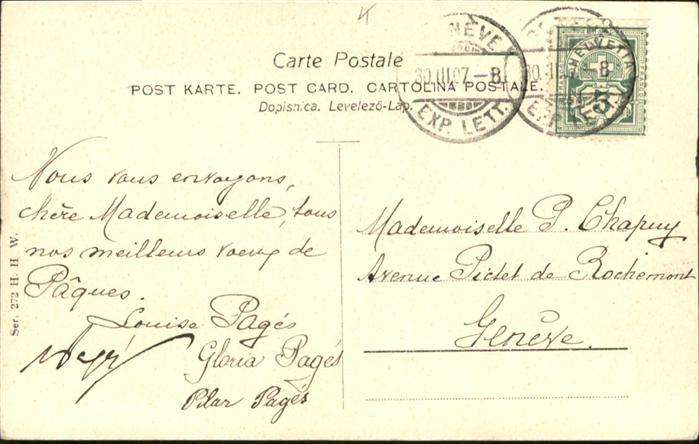 Carte Postale
POST KARTE. POST CARD. CARTOLINA POSTALE.
Dopisnica. Levelező-Lap.
GENÈVE
30.III.07.-8
EXP. LETT.
HELVETIA
5
Nous vous envoyons,
chère Mademoiselle, tous
nos meilleurs voeux de
Pâques.
Louise Pagés
Gloria Pagés
Pilar Pagés
Mademoiselle P. Chapuy
Avenue Pictet de Rochemont
Genève.
Ser. 272 H. H. W.